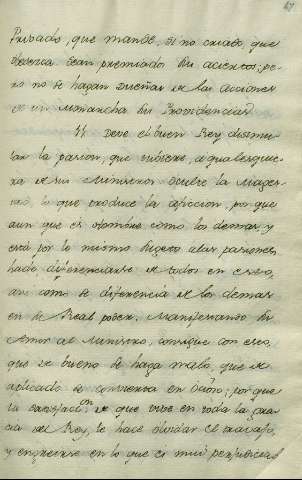 Privado, que mande, si no criado, que
obedezca sean premiados sus aciertos; pe-
ro no se hagan Dueñas de las acciones
de un Monarcha sus Providencias
Deve el buen Rey disimu-
lar la pasion, que tubiere, a qualesquie-
ra de sus Ministros oculte la Mages-
tad lo que produce la aficcion, porque
aun que es hombre como los demas, y
está por lo mismo sugeto a las pasiones
hade diferenciarse de todos en esso,
asi como se diferencia de los demas
en el Real poder. Manifestando su
Amor al Ministro, consigue con esso,
que de bueno se haga malo, que de
aplicado se convierta en ; porque
la satisfacion de que vive en toda la gra-
cia del Rey, le hace olvidar el travajo,
y engreirse en lo que es mui perjudicial